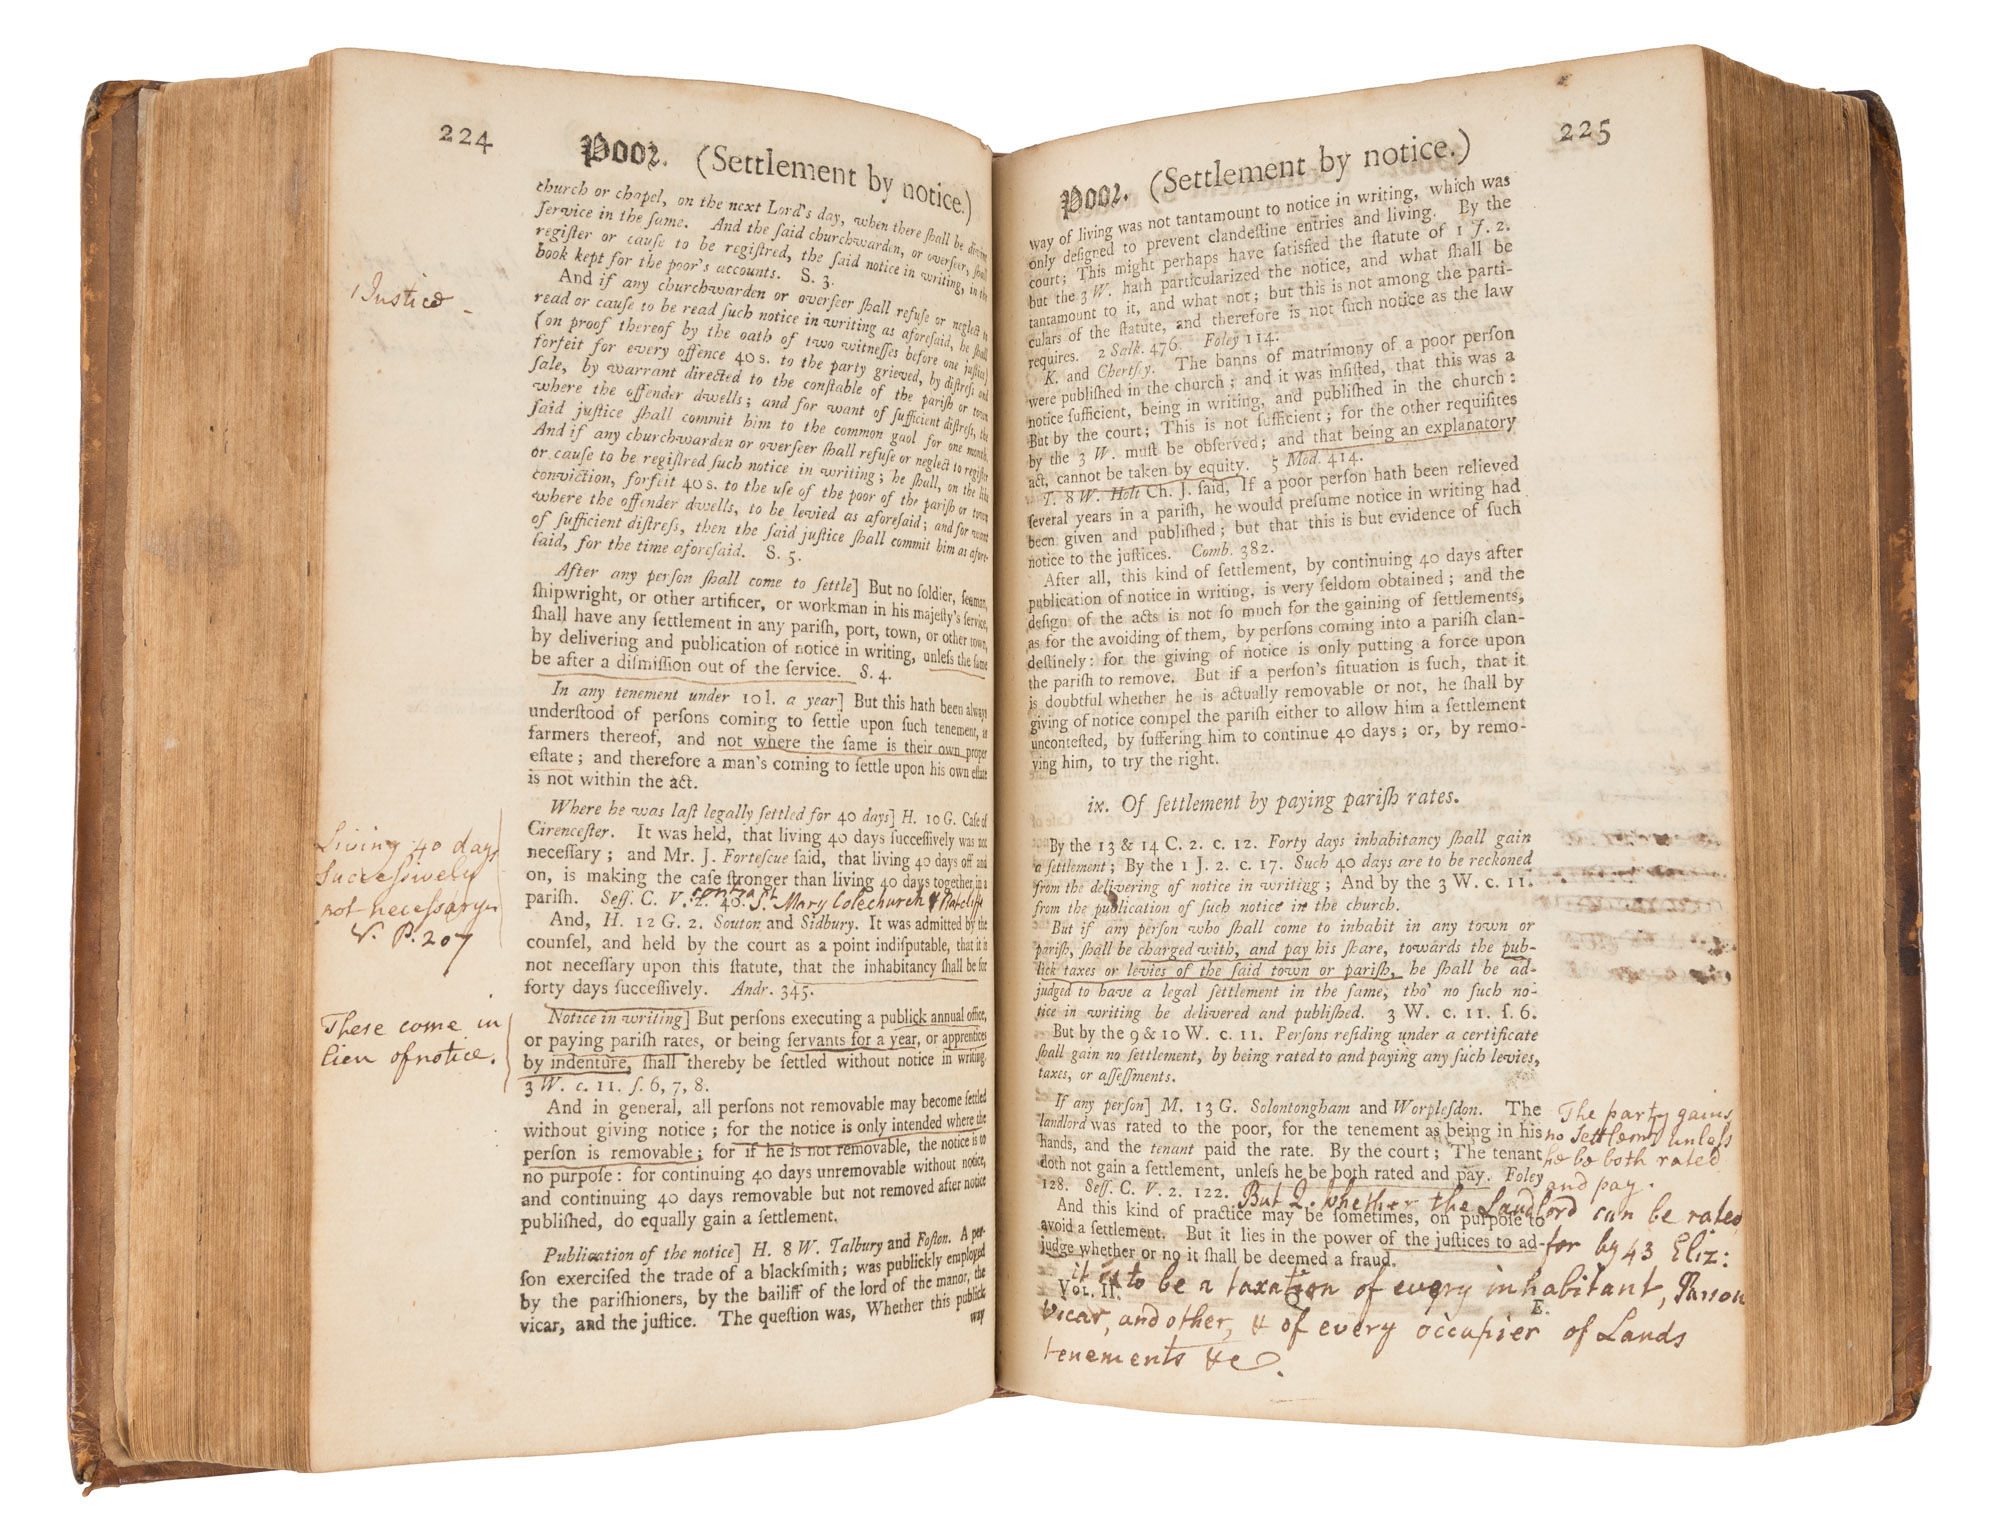 224
Poor. (Settlement by notice.)
church or chapel, on the next Lord's day, when there ſhall be divine
ſervice in the ſame. And the ſaid churchwarden, or overſeer, ſhall
regiſter or cauſe to be regiſtred, the ſaid notice in writing, in the
book kept for the poor's accounts. S. 3.
And if any churchwarden or overſeer ſhall refuſe or neglect to
read or cauſe to be read ſuch notice in writing as aforeſaid, he ſhall
(on proof thereof by the oath of two witneſſes before one juſtice)
forfeit for every offence 40 s. to the party grieved, by diſtreſs and
ſale, by warrant directed to the conſtable of the pariſh or town
where the offender dwells; and for want of ſufficient diſtreſs, the
ſaid juſtice ſhall commit him to the common gaol for one month.
And if any churchwarden or overſeer ſhall refuſe or neglect to regiſter
or cauſe to be regiſtred ſuch notice in writing; he ſhall, on the like
conviction, forfeit 40 s. to the uſe of the poor of the pariſh or town
where the offender dwells, to be levied as aforeſaid; and for want
of ſufficient diſtreſs, then the ſaid juſtice ſhall commit him as afore-
ſaid, for the time aforeſaid. S. 5.
After any perſon ſhall come to ſettle] But no ſoldier, ſeaman,
ſhipwright, or other artificer, or workman in his majeſty's ſervice,
ſhall have any ſettlement in any pariſh, port, town, or other town,
by delivering and publication of notice in writing, unleſs the ſame
be after a diſmiſſion out of the ſervice. S. 4.
In any tenement under 10 l. a year] But this hath been always
underſtood of perſons coming to ſettle upon ſuch tenement, as
farmers thereof, and not where the ſame is their own proper
eſtate; and therefore a man's coming to ſettle upon his own eſtate
is not within the act.
Where he was laſt legally ſettled for 40 days] H. 10 G. Caſe of
Cirenceſter. It was held, that living 40 days ſucceſſively was not
neceſſary; and Mr. J. Forteſcue ſaid, that living 40 days off and
on, is making the caſe ſtronger than living 40 days together in a
pariſh. Seſſ. C. V. 2. 46. contra St Mary Colechurch & Ratcliff
And, H. 12 G. 2. Souton and Sidbury. It was admitted by the
counſel, and held by the court as a point indiſputable, that it is
not neceſſary upon this ſtatute, that the inhabitancy ſhall be for
forty days ſucceſſively. Andr. 345.
Notice in writing] But perſons executing a publick annual office,
or paying pariſh rates, or being ſervants for a year, or apprentices
by indenture, ſhall thereby be ſettled without notice in writing.
3 W. c. 11. ſ. 6, 7, 8.
And in general, all perſons not removable may become ſettled
without giving notice; for the notice is only intended where the
perſon is removable; for if he is not removable, the notice is to
no purpoſe: for continuing 40 days unremovable without notice,
and continuing 40 days removable but not removed after notice
publiſhed, do equally gain a ſettlement.
Publication of the notice] H. 8 W. Talbury and Foſton. A per-
ſon exerciſed the trade of a blackſmith; was publickly employed
by the pariſhioners, by the bailiff of the lord of the manor, the
vicar, and the juſtice. The queſtion was, Whether this publick
way
1 Justice
Living 40 days
Successively
not necessary
V. P. 207
These come in
lieu of notice.
225
Poor. (Settlement by notice.)
way of living was not tantamount to notice in writing, which was
only deſigned to prevent clandeſtine entries and living. By the
court; This might perhaps have ſatisfied the ſtatute of 1 J. 2.
but the 3 W. hath particularized the notice, and what ſhall be
tantamount to it, and what not; but this is not among the parti-
culars of the ſtatute, and therefore is not ſuch notice as the law
requires. 2 Salk. 476. Foley 114.
K. and Chertſey. The banns of matrimony of a poor perſon
were publiſhed in the church; and it was inſiſted, that this was a
notice ſufficient, being in writing, and publiſhed in the church:
But by the court; This is not ſufficient; for the other requiſites
by the 3 W. muſt be obſerved; and that being an explanatory
act, cannot be taken by equity. 5 Mod. 414.
T. 8 W. Holt Ch. J. ſaid, If a poor perſon hath been relieved
ſeveral years in a pariſh, he would preſume notice in writing had
been given and publiſhed; but that this is but evidence of ſuch
notice to the juſtices. Comb. 382.
After all, this kind of ſettlement, by continuing 40 days after
publication of notice in writing, is very ſeldom obtained; and the
deſign of the acts is not ſo much for the gaining of ſettlements,
as for the avoiding of them, by perſons coming into a pariſh clan-
deſtinely: for the giving of notice is only putting a force upon
the pariſh to remove. But if a perſon's ſituation is ſuch, that it
is doubtful whether he is actually removable or not, he ſhall by
giving of notice compel the pariſh either to allow him a ſettlement
unconteſted, by ſuffering him to continue 40 days; or, by remo-
ving him, to try the right.
ix. Of ſettlement by paying pariſh rates.
By the 13 & 14 C. 2. c. 12. Forty days inhabitancy ſhall gain
a ſettlement; By the 1 J. 2. c. 17. Such 40 days are to be reckoned
from the delivering of notice in writing; And by the 3 W. c. 11.
from the publication of ſuch notice in the church.
But if any perſon who ſhall come to inhabit in any town or
pariſh, ſhall be charged with, and pay his ſhare, towards the pub-
lick taxes or levies of the ſaid town or pariſh, he ſhall be ad-
judged to have a legal ſettlement in the ſame, tho' no ſuch no-
tice in writing be delivered and publiſhed. 3 W. c. 11. ſ. 6.
But by the 9 & 10 W. c. 11. Perſons reſiding under a certificate
ſhall gain no ſettlement, by being rated to and paying any ſuch levies,
taxes, or aſſeſſments.
If any perſon] M. 13 G. Solontongham and Worpleſdon. The
landlord was rated to the poor, for the tenement as being in his
hands, and the tenant paid the rate. By the court; The tenant
doth not gain a ſettlement, unleſs he be both rated and pay. Foley
128. Seſſ. C. V. 2. 122.
And this kind of practice may be ſometimes, on purpoſe to
avoid a ſettlement. But it lies in the power of the juſtices to ad-
judge whether or no it ſhall be deemed a fraud.
Vol. II.
E.
The party gains
no Settlemt unless
he be both rated
and pay.
But Q. whether the Landlord can be rated
for by 43 Eliz:
it is to be a taxation of every inhabitant, Parson
vicar, and other, & of every occupier of Lands
tenements &c.